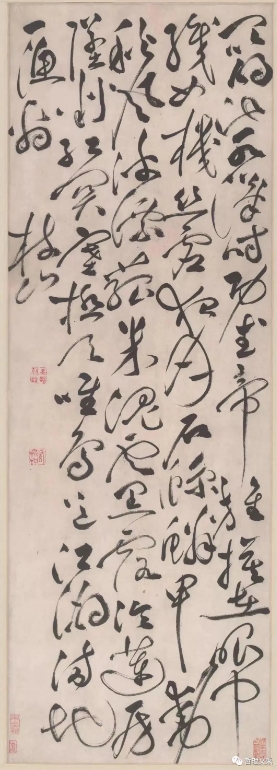 昆明池水漢時功武帝旌旗在眼中
織女機絲虛夜月石鯨鱗甲動
秋風波漂菰米沉雲黑露冷蓮房
墜粉紅關塞極天唯鳥道江湖滿地
一漁翁
枝山